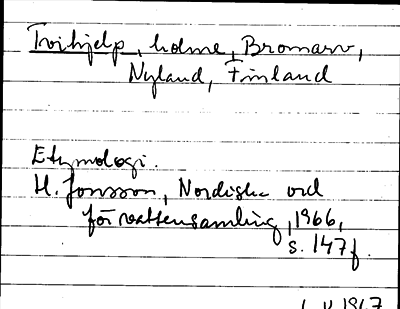 Tvihjelp, holme, Bromarv,
Nyland, Finland
Etymologi.
H. Jonsson, Nordiska ord
för vattensamling, 1966,
s. 147f.
1967